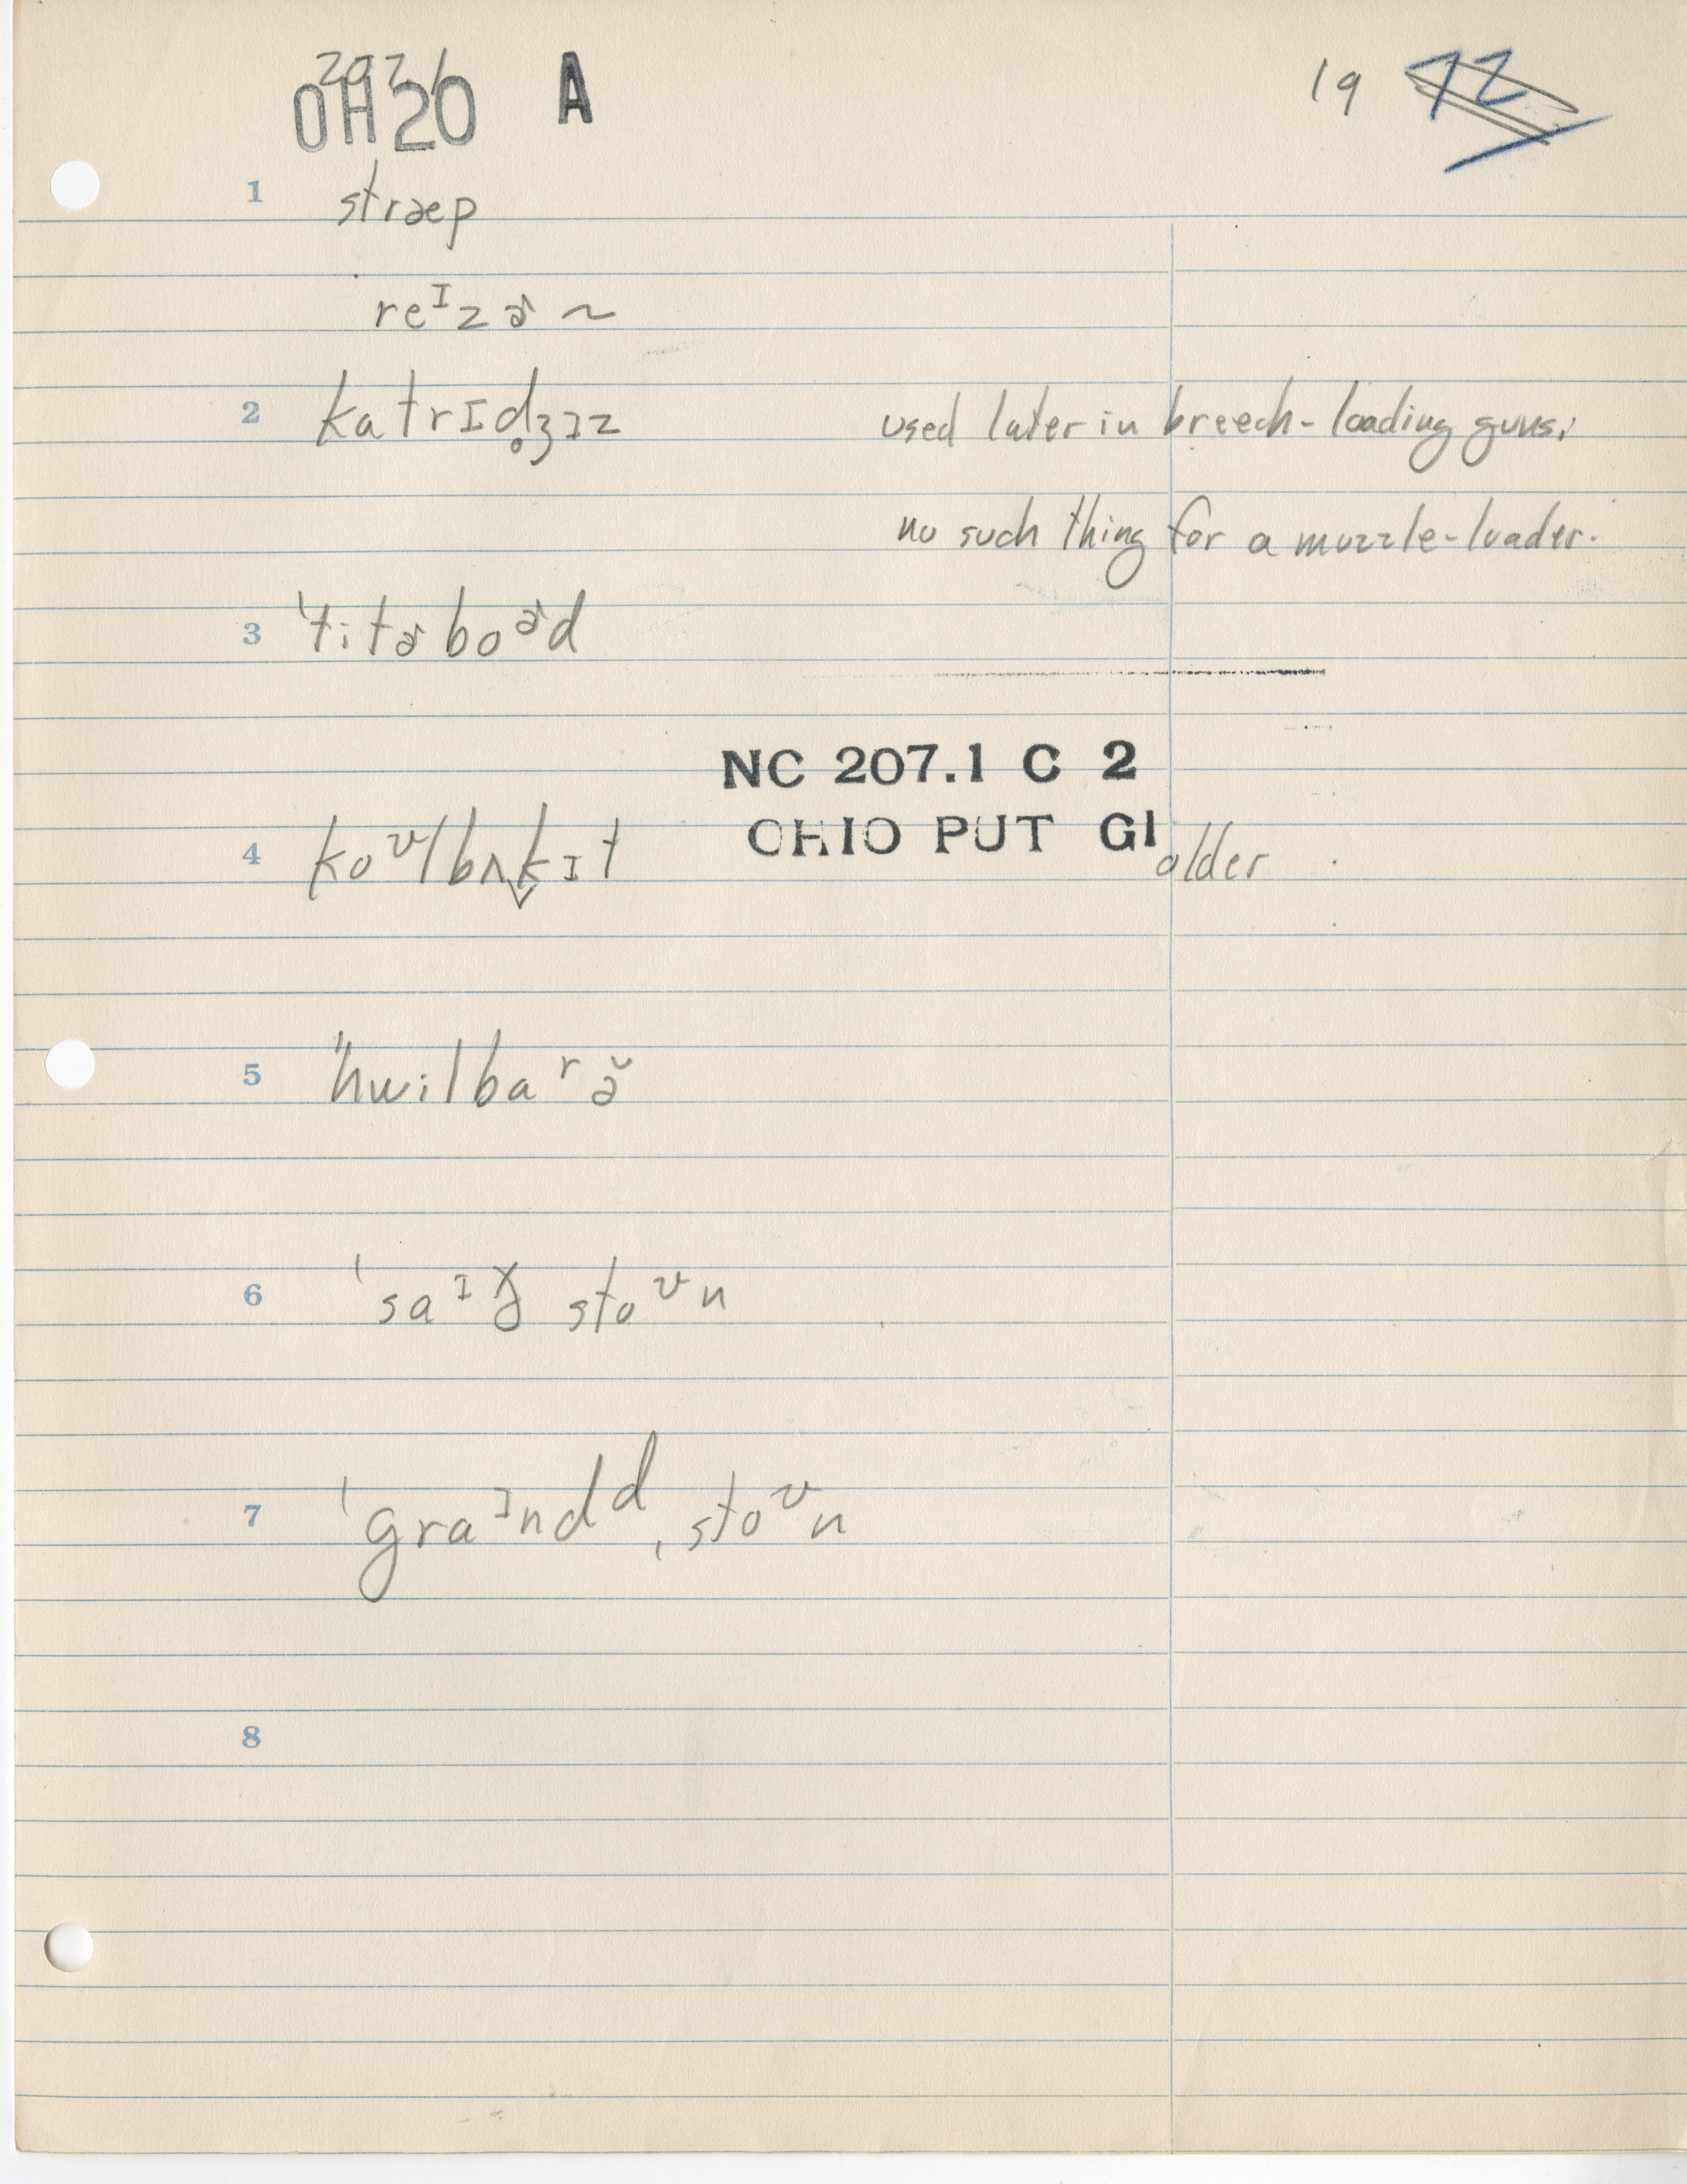 207.1
OH20 A 19 72
1 stræp
reᴵzɚ ~
2 katrɪd̥ʒɪz used later in breech-loading guns;
no such thing for a muzzle-loader.
3 ˈtitɚboᵊ˞d
NC 207.1 C 2
OHIO PUT GI
4 koᶷlbʌk̬ɪt older
5 ʺhwilbaʳə̆
6 ˈsaᴵð stoᶷn
7 ˈgraᴵndᵈˌstoᶷn
8